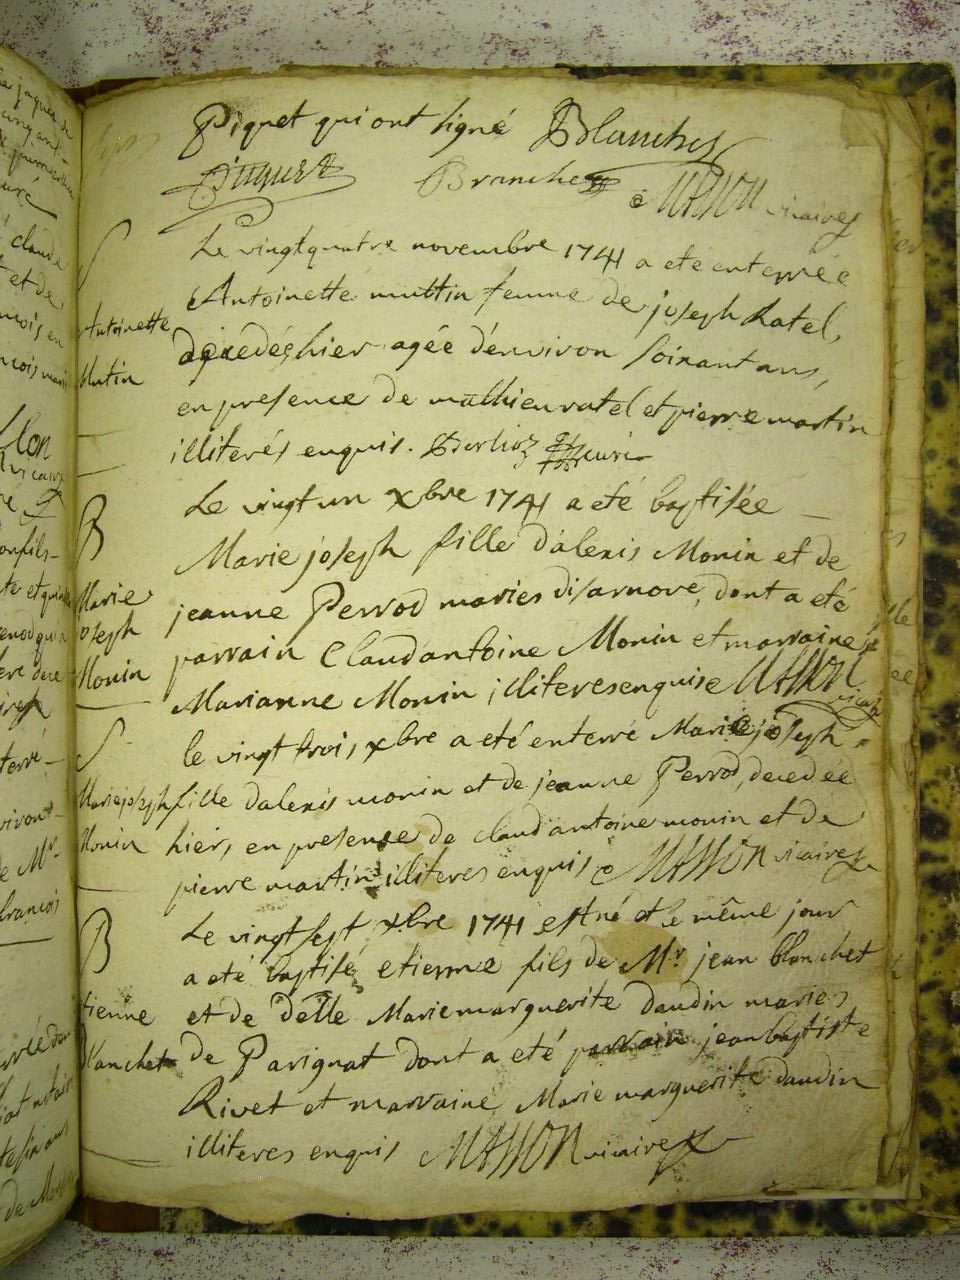 Piquet qui ont signé Blanchet
Piquet Branche e MASSON vicaire
S
Le vingt quatre novembre 1741 a eté enterrée
Antoinette Mutin
Antoinette muttin femme de joseph Ratel,
decedée hier agée d'environ soixant ans,
en presence de mathieu ratel et pierre martin
illiterés enquis. Berlioz curé
B
Le vingt un xbre 1741 a eté baptisée
Marie joseph Monin
Marie joseph fille d'alexis Monin et de
jeanne Perrod mariés disarnove, dont a eté
parrain Claud antoine Monin et marraine
Marianne Monin illiteres enquis e MASSON vicaire
S
le vingt trois xbre a eté enterré Marie joseph
Marie joseph Monin
fille d'alexis monin et de jeanne Perrod, decedée
hier, en presense de claud antoine monin et de
pierre martin illiteres enquis e MASSON vicaire
B
Le vingt sept xbre 1741 est né et le même jour
a eté baptisé etienne fils de Mr. jean blanchet
tienne Blanchet
et de delle Marie marguerite daudin mariés
de Parignat dont a eté parrain jean baptiste
Rivet et marraine Marie marguerite daudin
illiteres enquis MASSON vicaire